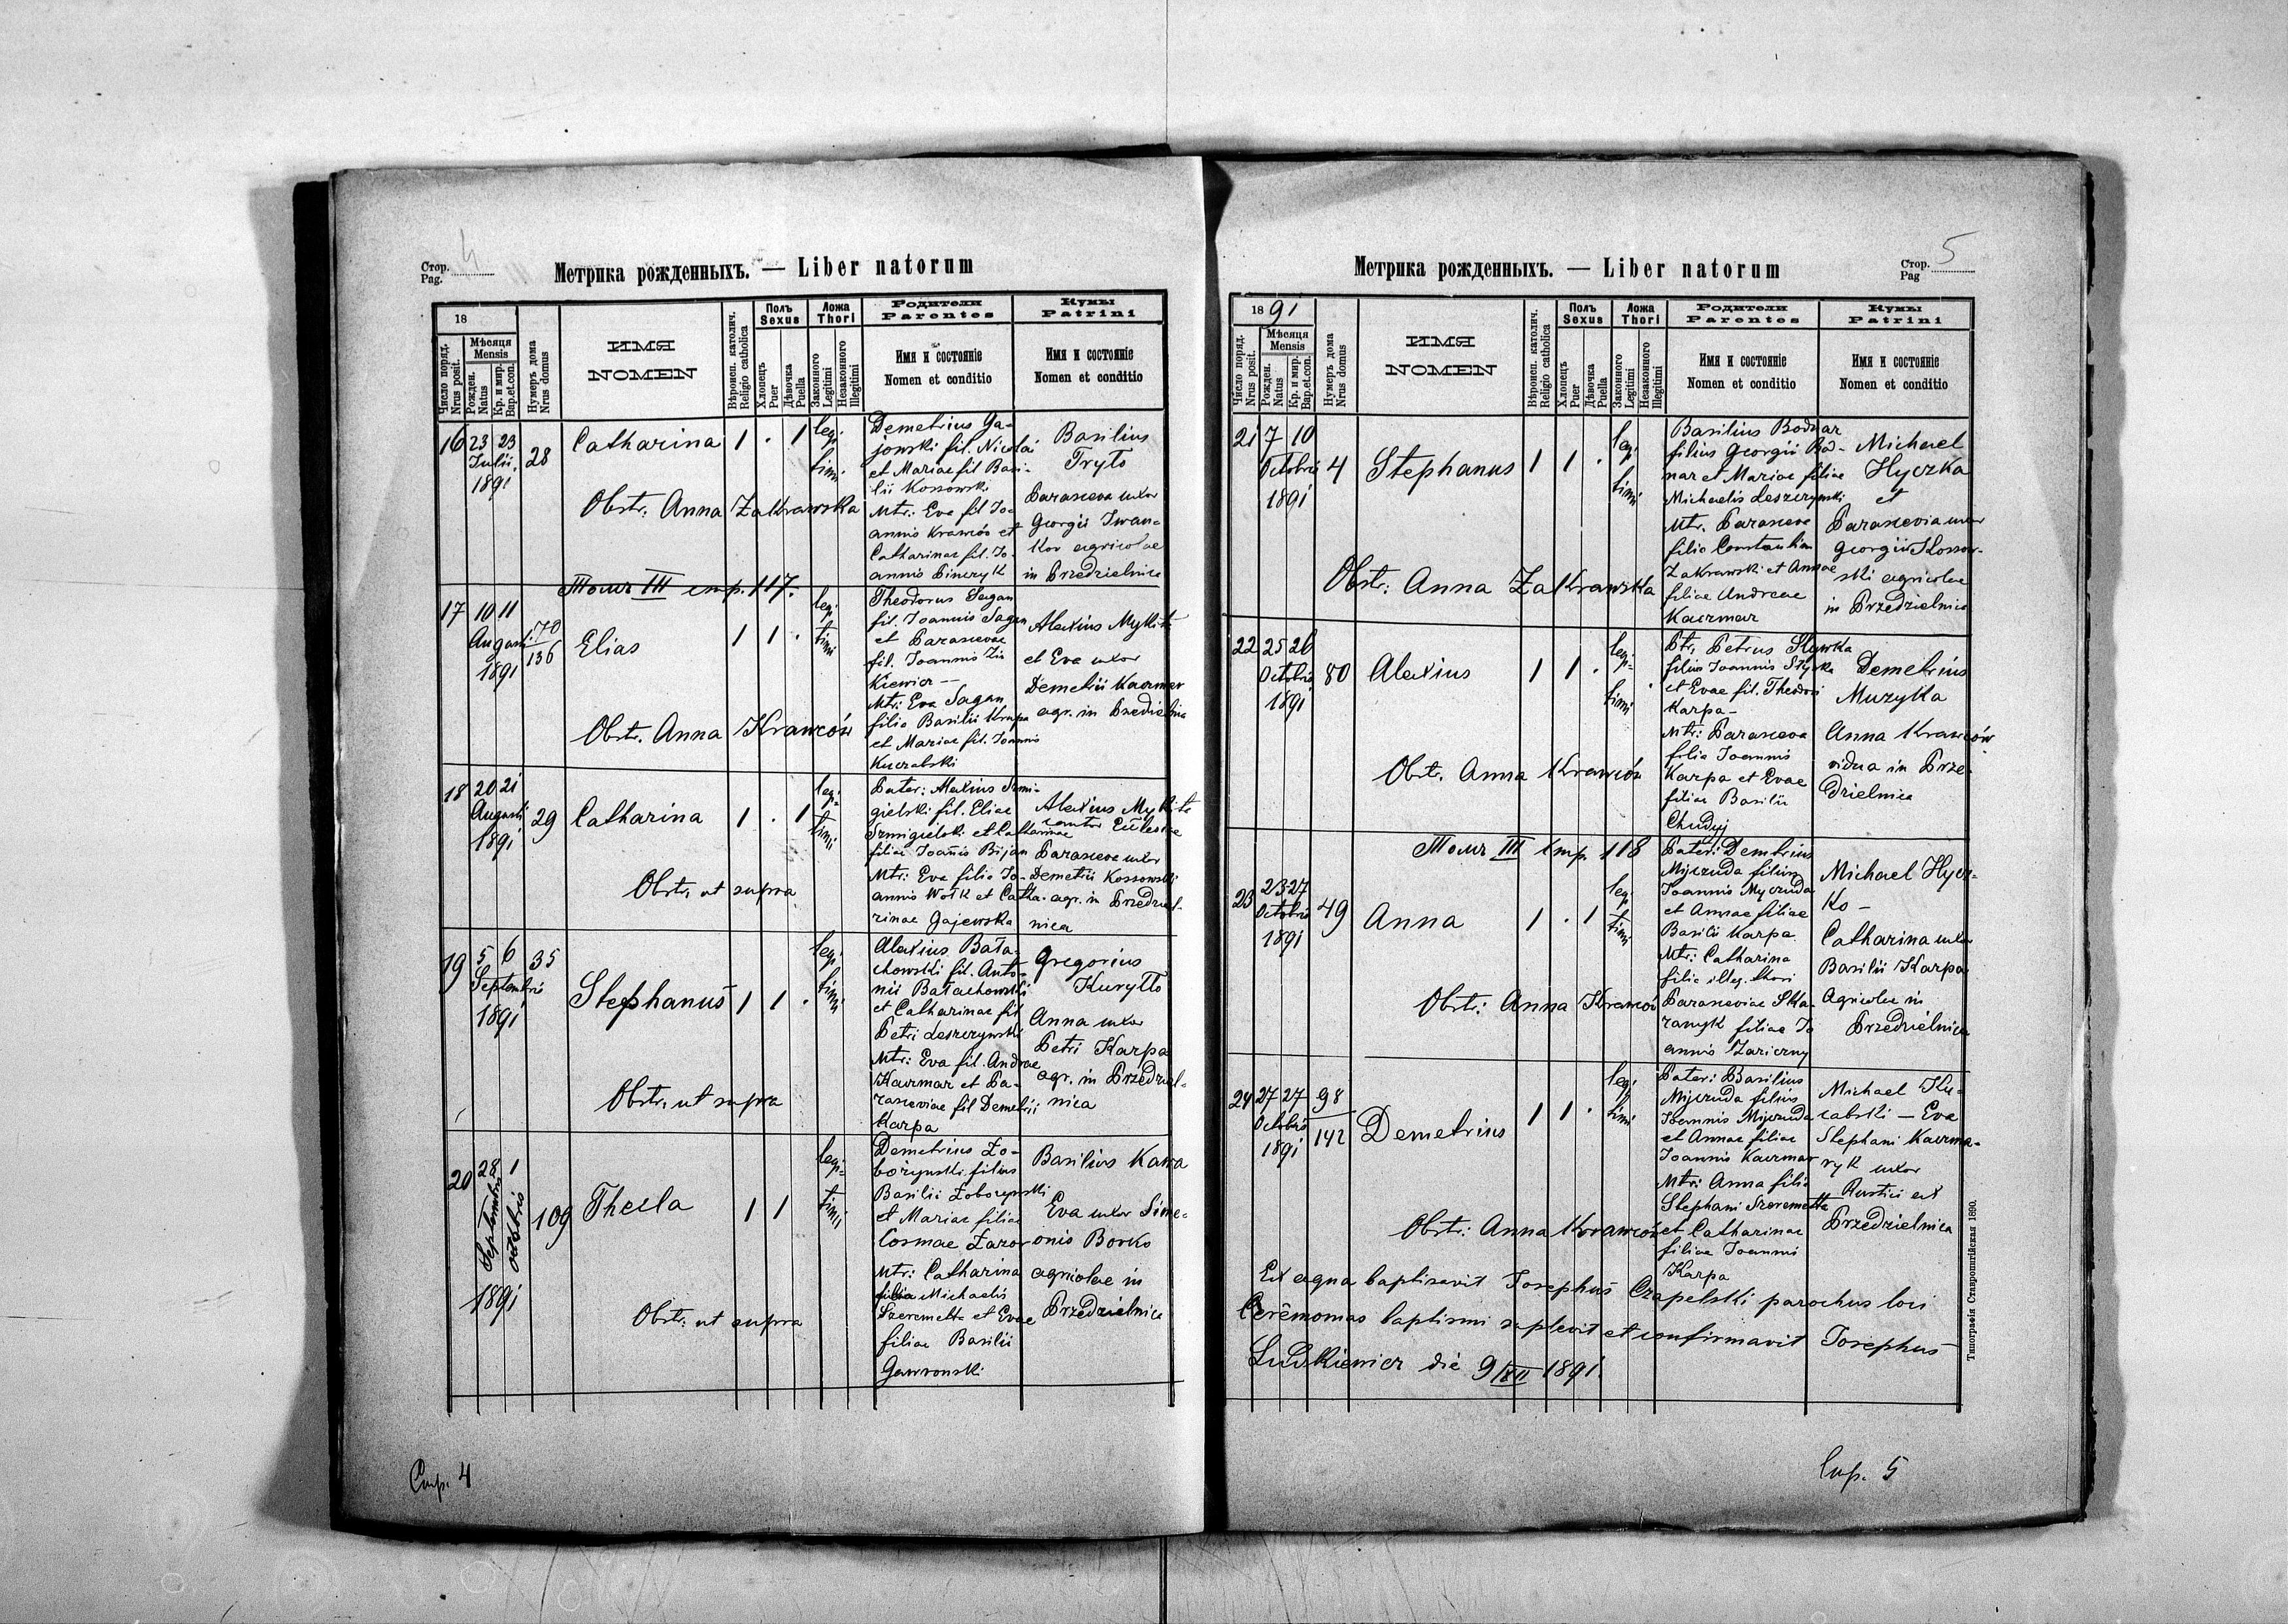 Стор. 4
Pag.
Метрика рожденныхъ. — Liber natorum
18
Число поряд. Nrus posit.
Мѣсяця Mensis
Рожден. Natus
Кр. и мир. Bap. et con.
Нумеръ дома Nrus domus
ИМЯ
NOMEN
Вѣроисп. католич. Religio catholica
Полъ Sexus
Хлопецъ Puer
Дѣвочка Puella
Ложа Thori
Законного Legitimi
Незаконного Illegitimi
Родители Parentes
Имя и состояніе
Nomen et conditio
Кумы Patrini
Имя и состояніе
Nomen et conditio
16 23 23 Julii 1891 28 Catharina 1 . 1 legi- timi
Demetrius Ga-
jowski fil. Nicolai
et Mariae fil Basi-
lii Kossowski
Mtr: Eva fil Jo-
annis Krawców et
Catharinae fil. Jo-
annis Pinczyk
Basilius
Tryto
Parasceva uxor
Georgii Iwan-
Kov agricolae
in Przedzielnica
Obstr: Anna Zakrawska
Томъ III стр. 117.
17 10 11 Augusti 1891 70/136 Elias 1 1 . legi timi
Theodorus Sagan
fil. Joannis Sagan
et Parascevae
fil. Joannis Zin
Kiewicz —
Mtr: Eva Sagan
filia Basilii Krupa
et Mariae fil. Joannis
Kuczabski
Alexius Mykita
et Eva uxor
Demetrii Kaczmar
agr. in Przedzielnica
Obstr. Anna Krawców
18 20 21 Augusti 1891 29 Catharina 1 . 1 legi- timi
Pater: Alexius Szmi-
gielski fil. Eliae
Szmigielski et Catharinae
filiae Joannis Bijan
Mtr: Eva filia Jo-
annis Wołk et Catha-
rinae Gajewska
Alexius Mykita
cantor Ecclesiae
Parasceva uxor
Demetrii Kossowski
agr. in Przedziel-
nica
Obstr. ut supra
19 5 6 Septembris 1891 35 Stephanus 1 1 . legi timi
Alexius Bała-
chowski fil. Anto-
nii Bałachowski
et Catharinae fil
Petri Leszczynski
Mtr: Eva fil. Andreae
Kaczmar et Pa-
rasceviae fil Demetrii
Karpa
Gregorius
Kuryłło
Anna uxor
Petri Karpa
agr. in Przedziel-
nica
Obstr. ut supra
20 28 Septembris 1 Octobris 1891 109 Thecla 1 1 legi- timi
Demetrius Zo-
bożynski filius
Basilii Zobozynski
et Mariae filiae
Cosmae Łazor
Mtr: Catharina
filia Michaelis
Szeremetta et Evae
filiae Basilii
Gawronski
Basilius Kawa
Eva uxor Sime-
onis Borko
agricolae in
Przedzielnica
Obstr: ut supra
Стр. 4
Метрика рожденныхъ. — Liber natorum
Стор. 5
Pag
1891
Число поряд. Nrus posit.
Мѣсяця Mensis
Рожден. Natus
Кр. и мир. Bap. et con.
Нумеръ дома Nrus domus
ИМЯ
NOMEN
Вѣроисп. католич. Religio catholica
Полъ Sexus
Хлопецъ Puer
Дѣвочка Puella
Ложа Thori
Законного Legitimi
Незаконного Illegitimi
Родители Parentes
Имя и состояніе
Nomen et conditio
Кумы Patrini
Имя и состояніе
Nomen et conditio
21 7 10 Octobris 1891 4 Stephanus 1 1 . legi timi
Basilius Bodnar
filius Georgii Bod-
nar et Mariae filiae
Michaelis Leszczynski
Mtr. Parasceva
filia Constantini
Zakrawski et Annae
filiae Andreae
Kaczmar
Michael
Hyczka
et
Parascevia uxor
Georgii Kossow-
ski agricolae
in Przedzielnica
Obstr: Anna Zakrawska
22 25 26 Octobris 1891 80 Alexius 1 1 . legi- timi
Ptr. Petrus Slywka
filius Joannis Slywka
et Evae fil. Theodori
Karpa —
Mtr: Parasceva
filia Joannis
Karpa et Evae
filiae Basilii
Chudyj
Demetrius
Muzyka
Anna Krawców
vidua in Prze-
dzielnica
Obstr. Anna Krawców
Томъ III стр. 118
23 23 27 Octobris 1891 49 Anna 1 . 1 legi timi
Pater: Demetrius
Myczuda filius
Joannis Myczuda
et Annae filiae
Basilii Karpa
Mtr: Catharina
filia illeg. thori
Parasceviae Ska-
zanyk filiae Jo
annis Zariczny
Michael Hycz-
Ko —
Catharina uxor
Basilii Karpa
Agricolae in
Przedzielnica
Obstr: Anna Krawców
24 27 27 Octobris 1891 98/142 Demetrius 1 1 . legi timi
Pater: Basilius
Myczuda filius
Joannis Myczuda
et Annae filiae
Joannis Kaczmar
Mtr: Anna filia
Stephani Szeremetta
et Catharinae
filiae Joannis
Karpa
Michael Ku-
czabski — Eva
Stephani Kaczma-
ryk uxor
Rustici ex
Przedzielnica
Obstr: Anna Krawców
Ex aqua baptisavit Josephus Czapelski parochus loci
Ceremonias baptismi suplevit et confirmavit Josephus
Ludkiewicz die 9/XII 1891.
Типографія Ставропигійская 1890.
Стр. 5